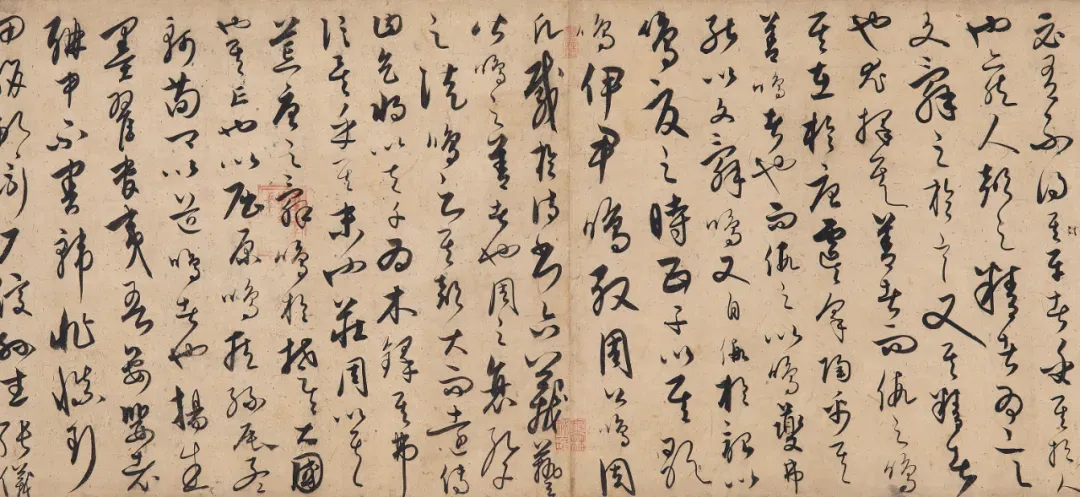 必有不得其平者乎其於人
也亦然人聲之精者為言
文辭之於言又其精者
也尤擇其善者而假之鳴
其在於唐虞咎陶禹其
善鳴者也而假之以鳴夔弗
能以文辭鳴又自假於韶以
鳴夏之時五子以其歌
鳴伊尹鳴殷周公鳴周
凡載於詩書六藝
皆鳴之善者也周之衰孔子
之徒鳴之其聲大而遠傳
曰天將以夫子為木鐸其弗
信矣乎其末也莊周以其
荒唐之辭鳴於楚大國
也其亡也以屈原鳴臧孫辰孟
軻荀卿以道鳴者也楊朱
墨翟管夷吾晏嬰老
聃申不害韓非慎到
田駢鄒衍尸佼孫武張儀